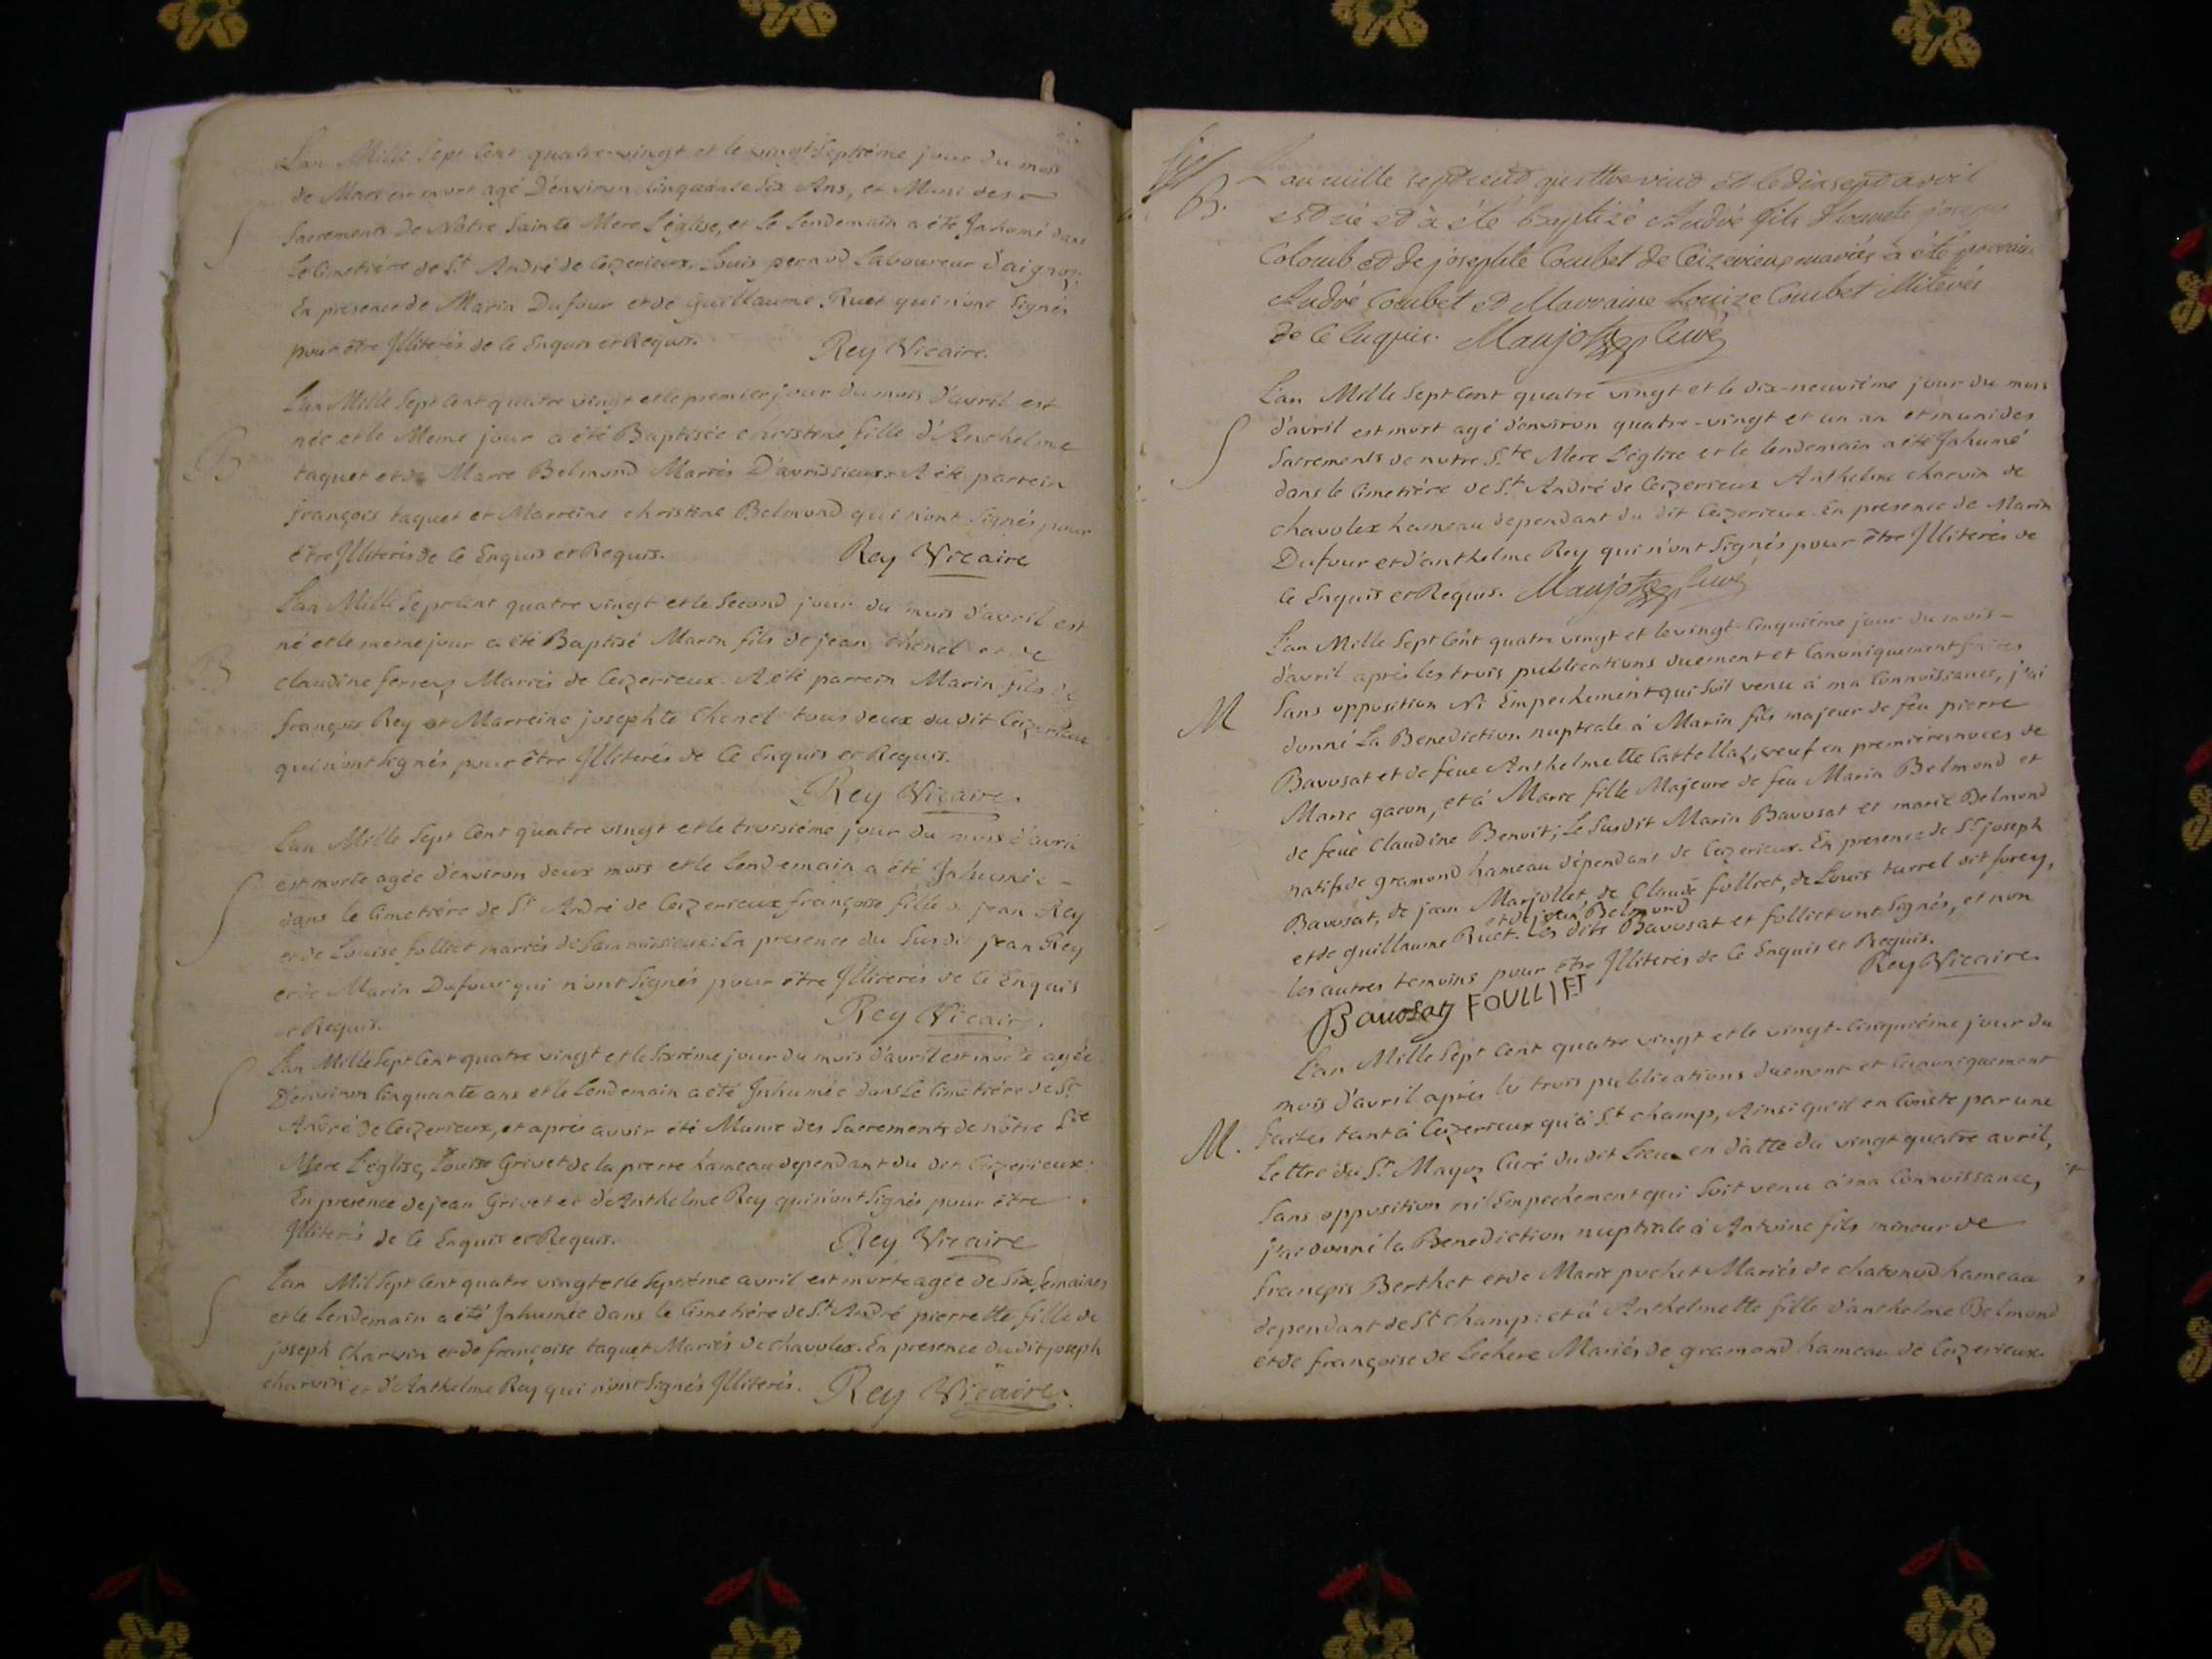 Lan Mille Sept Cent quatre-vingt et le vingt Septième jour du mois
de Mars est mort agé D'environ Cinquante Six Ans, et Muni des
S
Sacrements de Nôtre Sainte Mere L'église, et le lendemain a été Inhumé dans
Le Cimetiére de St André de Ceizerieux, Louis pernod Laboureur d'aignoz:
En presence de Marin Dufour et de guillaume Ruet qui n'ont Signés
pour être Illiterés de Ce Enquis et Requis. Rey Vicaire.
L'an Mille Sept Cent quatre vingt et le premier jour du mois d'avril est
née et le Meme jour a été Baptisée christine fille d'Anthelme
B
taquet et de Marie Belmond Mariés D'avrissieux. A été parrein
françois taquet et Marreine christine Belmond qui n'ont Signés pour
être Illiterés de Ce Enquis et Requis. Rey Vicaire
Lan Mille Sept Cent quatre vingt et le Second jour du mois d'avril est
né et le meme jour a été Baptisé Marin fils de jean chenel et de
B
claudine ferrery Mariés de Ceizerieux. A été parrein Marin fils de
françois Rey et Marreine josephte Chenel tous deux du dit Ceizerieux
qui n'ont Signés pour être Illiterés de Ce Enquis et Requis.
Rey Vicaire.
Lan Mille Sept Cent quatre vingt et le troisiéme jour du mois d'avril
est morte agée d'environ deux mois et le lendemain a été Inhumée
S
dans le Cimetiére de St André de Ceizerieux françoise fille de jean Rey
et de Louise folliet mariés de En presence du Susdit jean Rey
et de Marin Dufour qui n'ont Signés pour être Illiterés de Ce Enquis
et Requis. Rey Vicaire.
Lan Mille Sept Cent quatre vingt et le Sixiéme jour du mois d'avril est morte agée
S
D'environ Cinquante ans et le lendemain a été Inhumée dans Le Cimetiére de St
André de Ceizerieux, et aprés avoir été Munie des Sacrements de nôtre Ste
Mere L'église, Louise Grivet de la pierre hameau dependant du dit Ceizerieux:
En presence de jean Grivet et de Anthelme Rey qui n'ont Signés pour être
Illiterés de Ce Enquis et Requis. Rey Vicaire
Lan Mil Sept Cent quatre vingt et le Septiéme avril est morte agée de Six Semaines
S
et le lendemain a été Inhumée dans le Cimetiére de St André pierrette fille de
joseph Charvin et de françoise taquet Mariés de chavolex. En presence du dit joseph
charvin et d'Anthelme Rey qui n'ont Signés Illiterés. Rey Vicaire.
L an mille sept cent quattre vint et le dix sept avril
B.
est né et à été baptizé André fils d'honnete joseph
Colomb et de josephte Combet de Ceizerieux mariés a été parrain
André Combet et Marraine Louize Combet Iliterés
de Ce Enquis. Maujot Curé
L'an Mille Sept Cent quatre vingt et le dix-neuviéme jour du mois
d'avril est mort agé d'environ quatre-vingt et un an et muni des
S
Sacrements de notre S.te Mere L'église et le lendemain a été Inhumé
dans le Cimetiére de S.t André de Ceizerieux Anthelme charvin de
chavolex hameau dependant du dit Ceizerieux. En presence de Marin
Dufour et d'anthelme Rey qui n'ont Signés pour être Illiterés de
Ce Enquis et Requis. Maujot Curé
L'an Mille Sept Cent quatre vingt et le vingt-Cinquiéme jour du mois
d'avril aprés les trois publications duement et Canoniquement faites
M
Sans opposition Ni Empechement qui Soit venu à ma Connoissance, j'ai
donné La Benediction nuptiale à Marin fils majeur de feu pierre
Bavosat et de feue Anthelmette Cattellaz, veuf en premieres noces de
Marie gacon, et à Marie fille Majeure de feu Marin Belmond et
de feuë Claudine Benoit; Le Susdit Marin Bavosat et marie Belmond
natifs de gramond hameau dépendant de Ceizerieux. En presence de Sr joseph
Bavosat, de jean Marjollet, de Claude folliet, de Louis turrel dit forey,
et de jean Belmond
et de guillaume Ruet. Les dits Bavosat et folliet ont Signés, et non
les autres temoins pour être Illiterés de Ce Enquis et Requis.
Rey Vicaire.
Bavosat FOULLIET
L'an Mille Sept Cent quatre vingt et le vingt-Cinquiéme jour du
mois d'avril aprés les trois publications duement et Canoniquement
M.
faites tant à Ceizerieux qu'à St champ, Ainsi qu'il en Conste par une
Lettre du Sr Mayos Curé du dit Lieu en datte du vingt quatre avril,
Sans opposition ni Empechement qui Soit venu à ma Connoissance,
j'ai donné la Benediction nuptiale à Antoine fils mineur de
françois Berthet et de Marie pochet Mariés de chatonod hameau
dependant de St champ: et à Anthelmette fille d'anthelme Belmond
et de françoise de Lechere Mariés de gramond hameau de Ceizerieux.